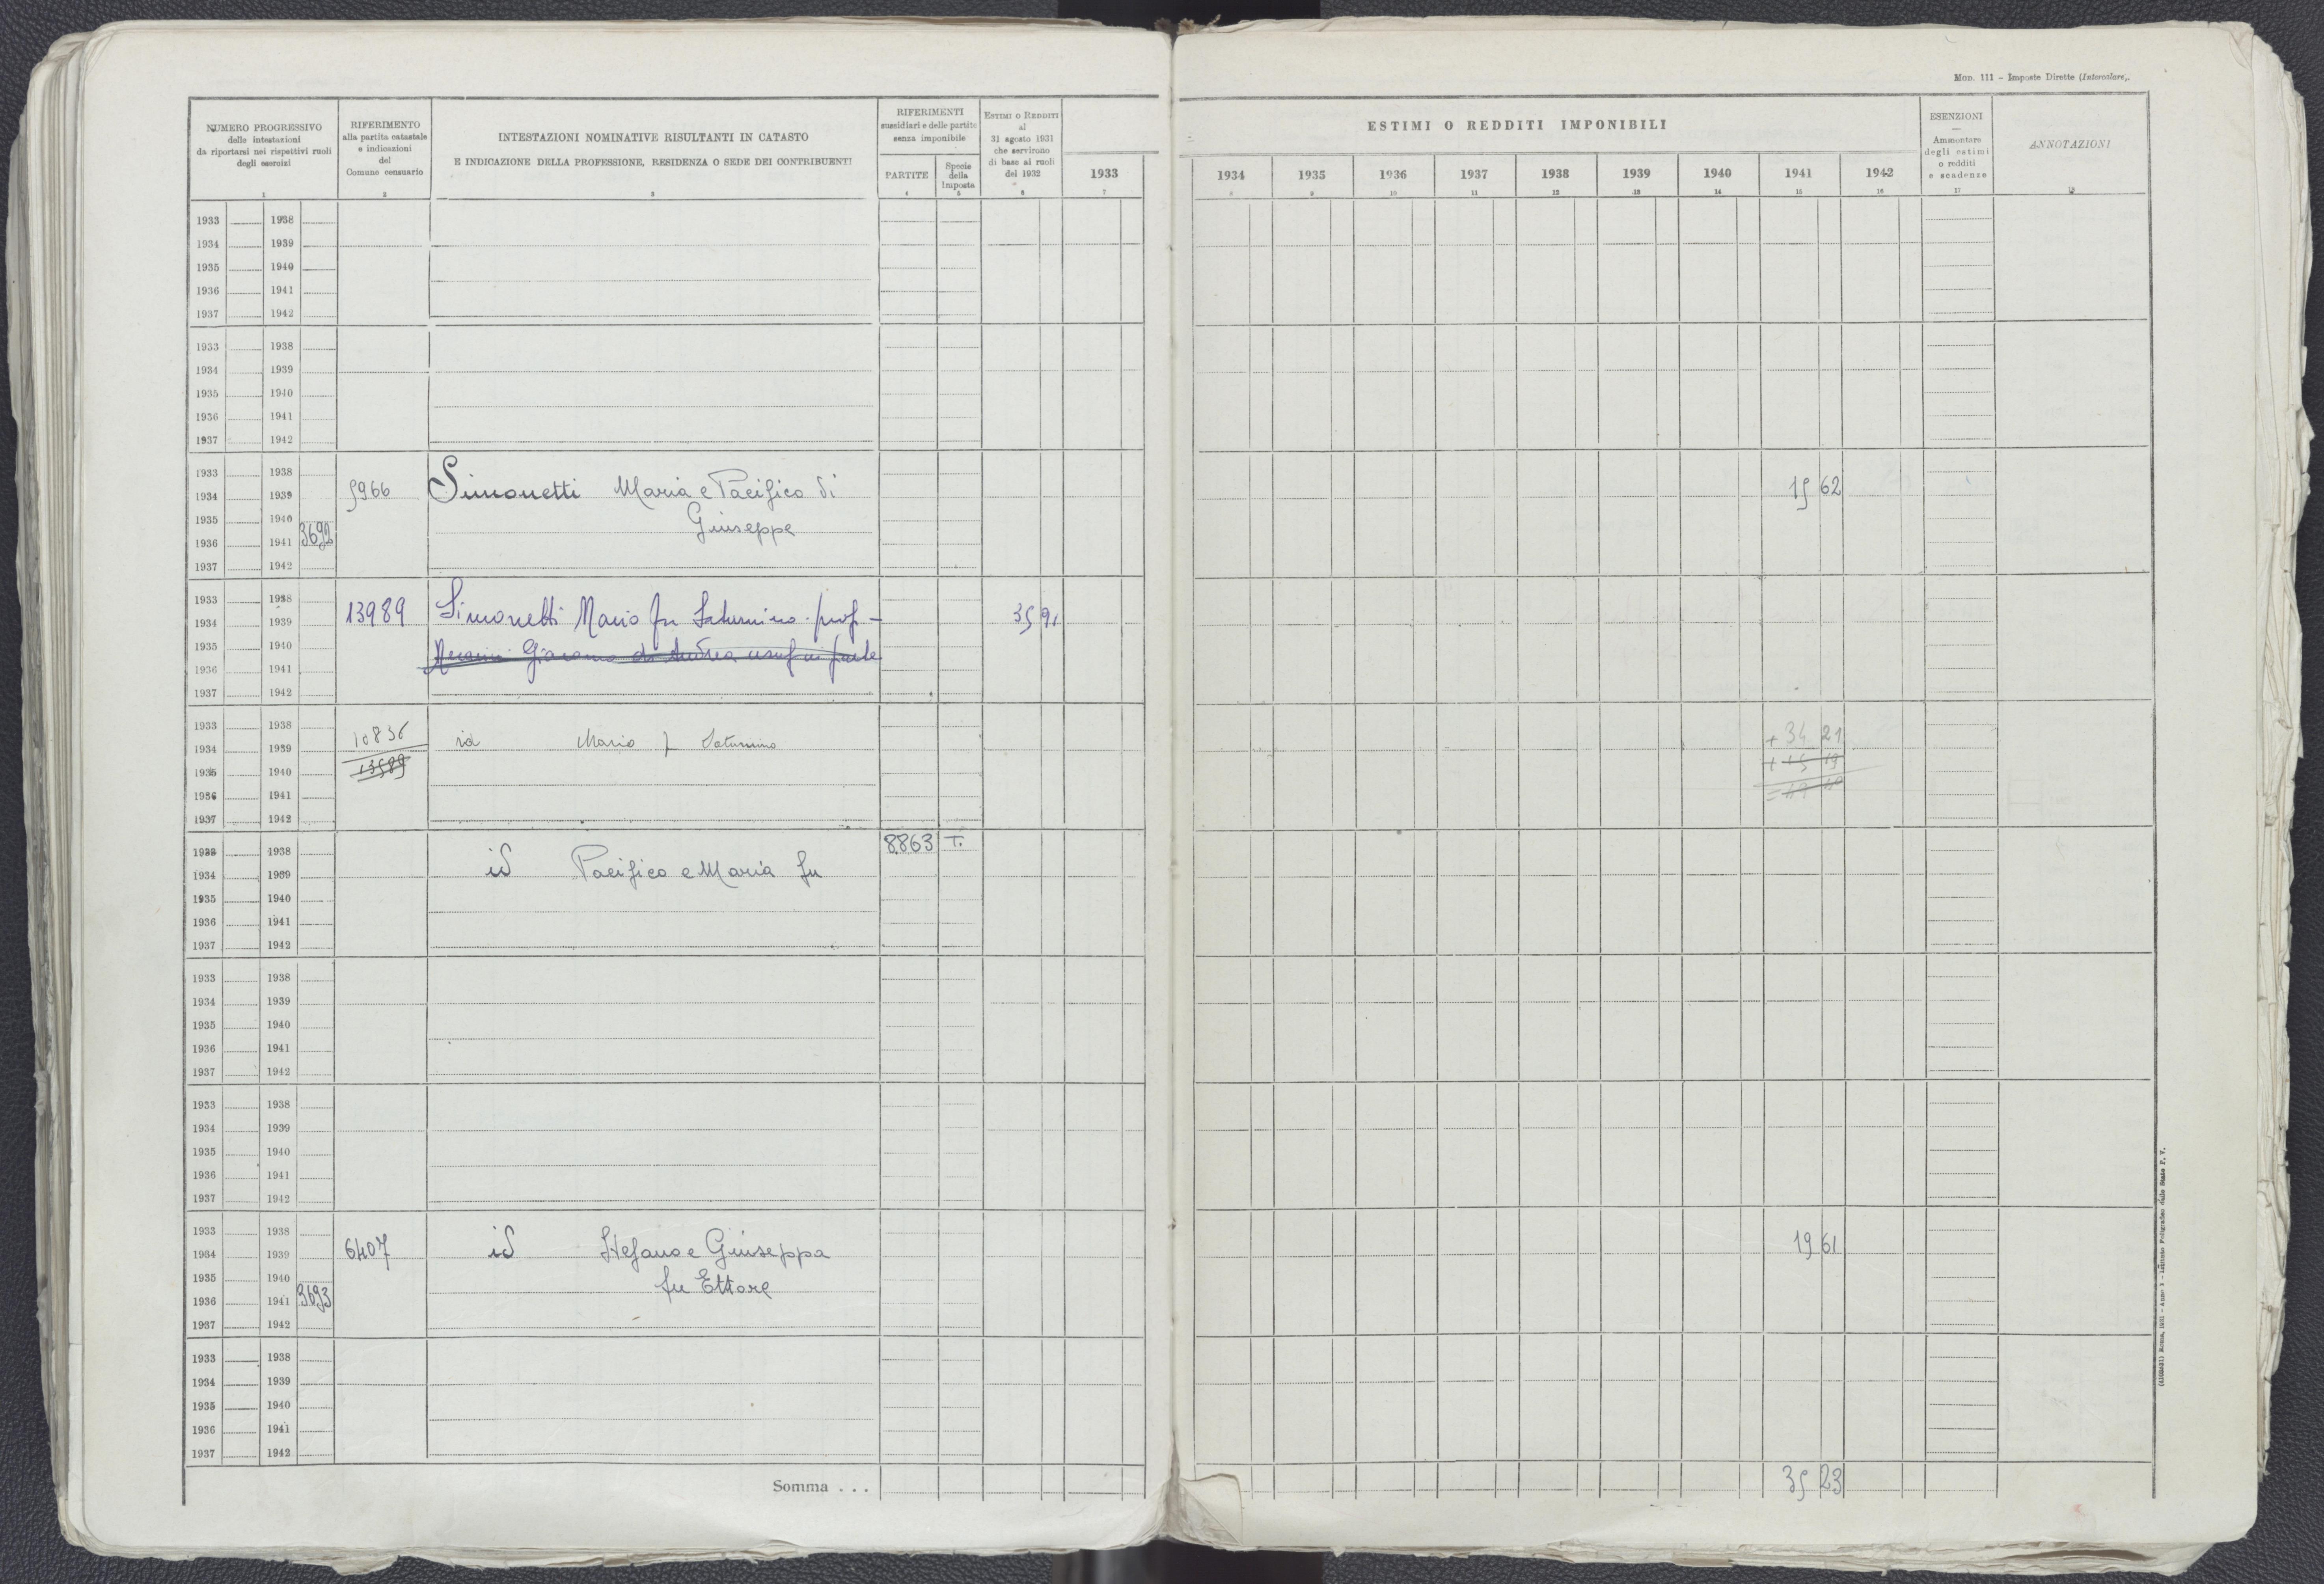 MOD. 111 - Imposte Dirette (Intercalare).
NUMERO PROGRESSIVO
delle intestazioni
da riportarsi nei rispettivi ruoli
degli esercizi
1
RIFERIMENTO
alla partita catastale
e indicazioni
del
Comune censuario
2
INTESTAZIONI NOMINATIVE RISULTANTI IN CATASTO
E INDICAZIONE DELLA PROFESSIONE, RESIDENZA O SEDE DEI CONTRIBUENTI
3
RIFERIMENTI
sussidiari e delle partite
senza imponibile
PARTITE
4
Specie
della
Imposta
5
ESTIMI O REDDITI
al
31 agosto 1931
che servirono
di base ai ruoli
del 1932
6
ESTIMI O REDDITI IMPONIBILI
1933 1934 1935 1936 1937 1938 1939 1940 1941 1942
7 8 9 10 11 12 13 14 15 16
ESENZIONI
Ammontare
degli estimi
o redditi
e scadenze
17
ANNOTAZIONI
18
1933 1938
1934 1939
1935 1940
1936 1941
1937 1942
1933 1938
1934 1939
1935 1940
1936 1941
1937 1942
1933 1938
1934 1939 5966 Simonetti Maria e Pacifico di 15 62
1935 1940 Giuseppe
1936 1941 3692
1937 1942
1933 1938
1934 1939 13989 Simonetti Mario fu Saturnino prop - 35 91
1935 1940 Giacomo di Andrea usuf in parte
1936 1941
1937 1942
1933 1938 10836 + 34 21
1934 1939 id Mario f Saturnino
1935 1940 13989 + 15 19
1936 1941 = 49 40
1937 1942
1933 1938 8863 T.
1934 1939 id Pacifico e Maria fu
1935 1940
1936 1941
1937 1942
1933 1938
1934 1939
1935 1940
1936 1941
1937 1942
1933 1938
1934 1939
1935 1940
1936 1941
1937 1942
1933 1938
1934 1939 6407 id Stefano e Giuseppa 19 61
1935 1940 fu Ettore
1936 1941 3693
1937 1942
1933 1938
1934 1939
1935 1940
1936 1941
1937 1942
Somma . . . 35 23